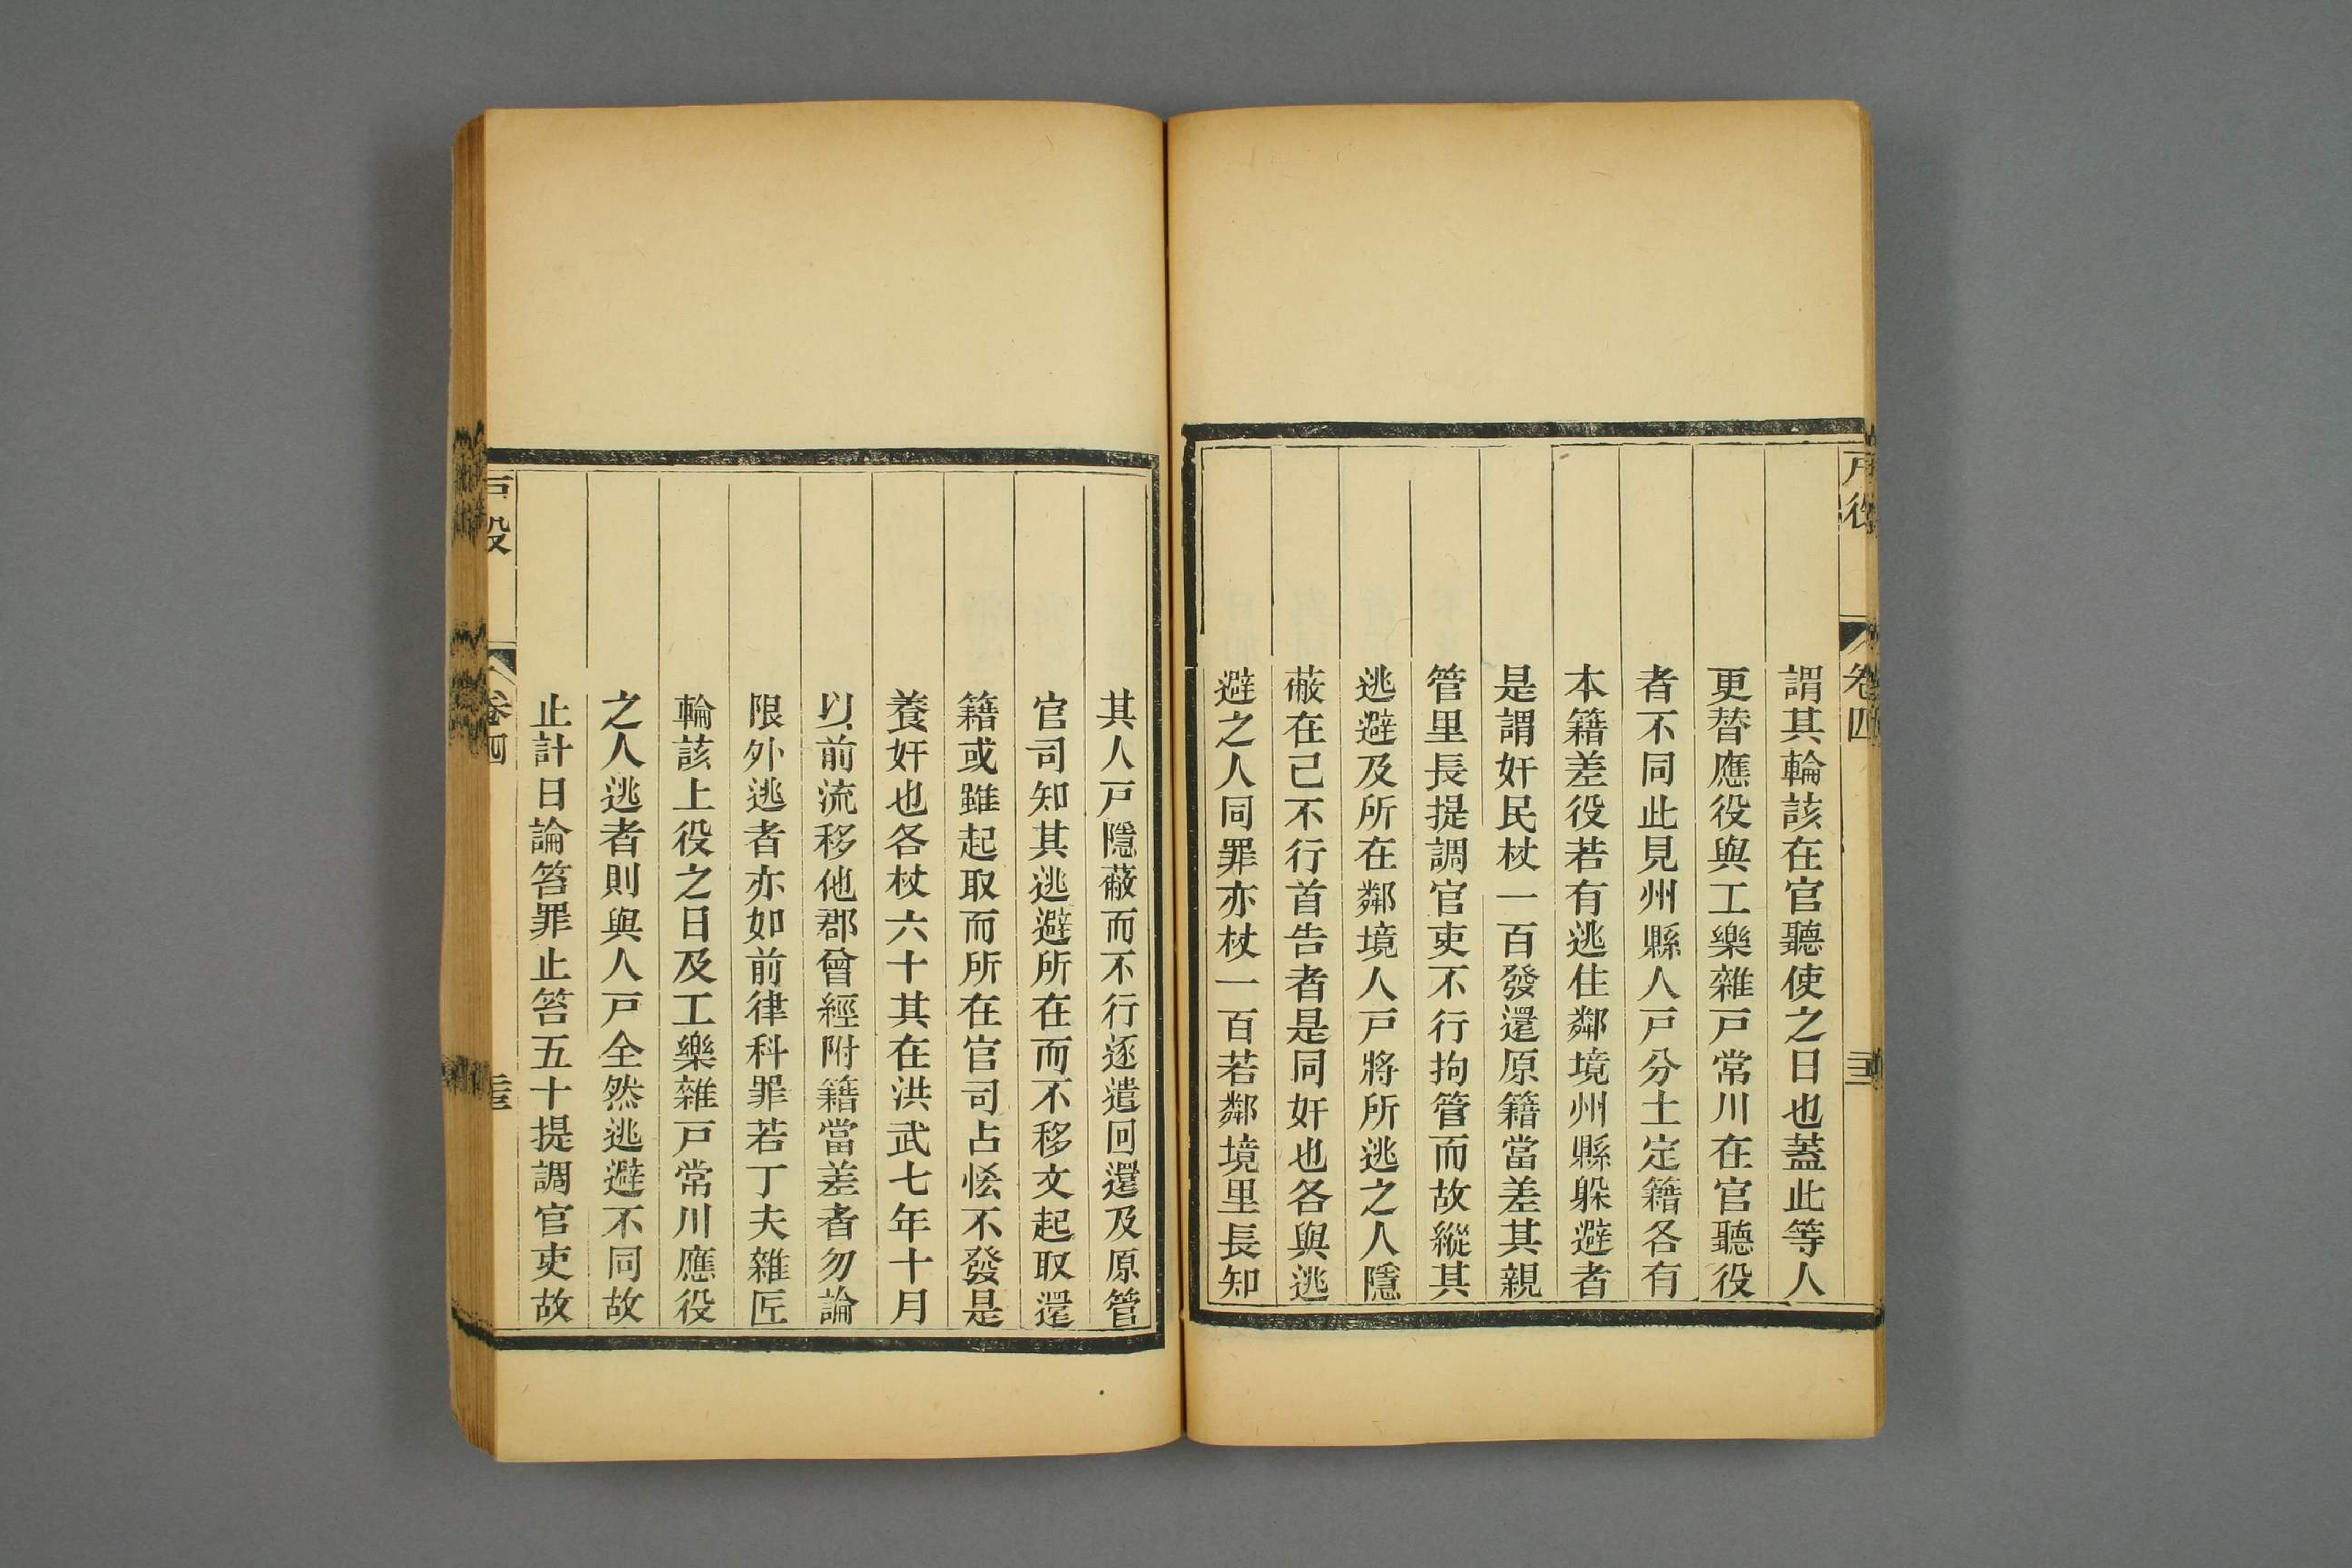 戸役
卷四
謂其輪該在官聽使之日也蓋此等人
更替應役與工樂雜戸常川在官聽役
者不同此見州縣人戸分土定籍各有
本籍差役若有逃住鄰境州縣躲避者
是謂奸民杖一百發還原籍當差其親
管里長提調官吏不行拘管而故縱其
逃避及所在鄰境人戸將所逃之人隱
蔽在己不行首告者是同奸也各與逃
避之人同罪亦杖一百若鄰境里長知
其人戸隱蔽而不行逐遣回還及原管
官司知其逃避所在而不移文起取還
籍或雖起取而所在官司占恡不發是
養奸也各杖六十其在洪武七年十月
以前流移他郡曾經附籍當差者勿論
限外逃者亦如前律科罪若丁夫雜匠
輪該上役之日及工樂雜戸常川應役
之人逃者則與人戸全然逃避不同故
止計日論笞罪止笞五十提調官吏故
戸役
卷四